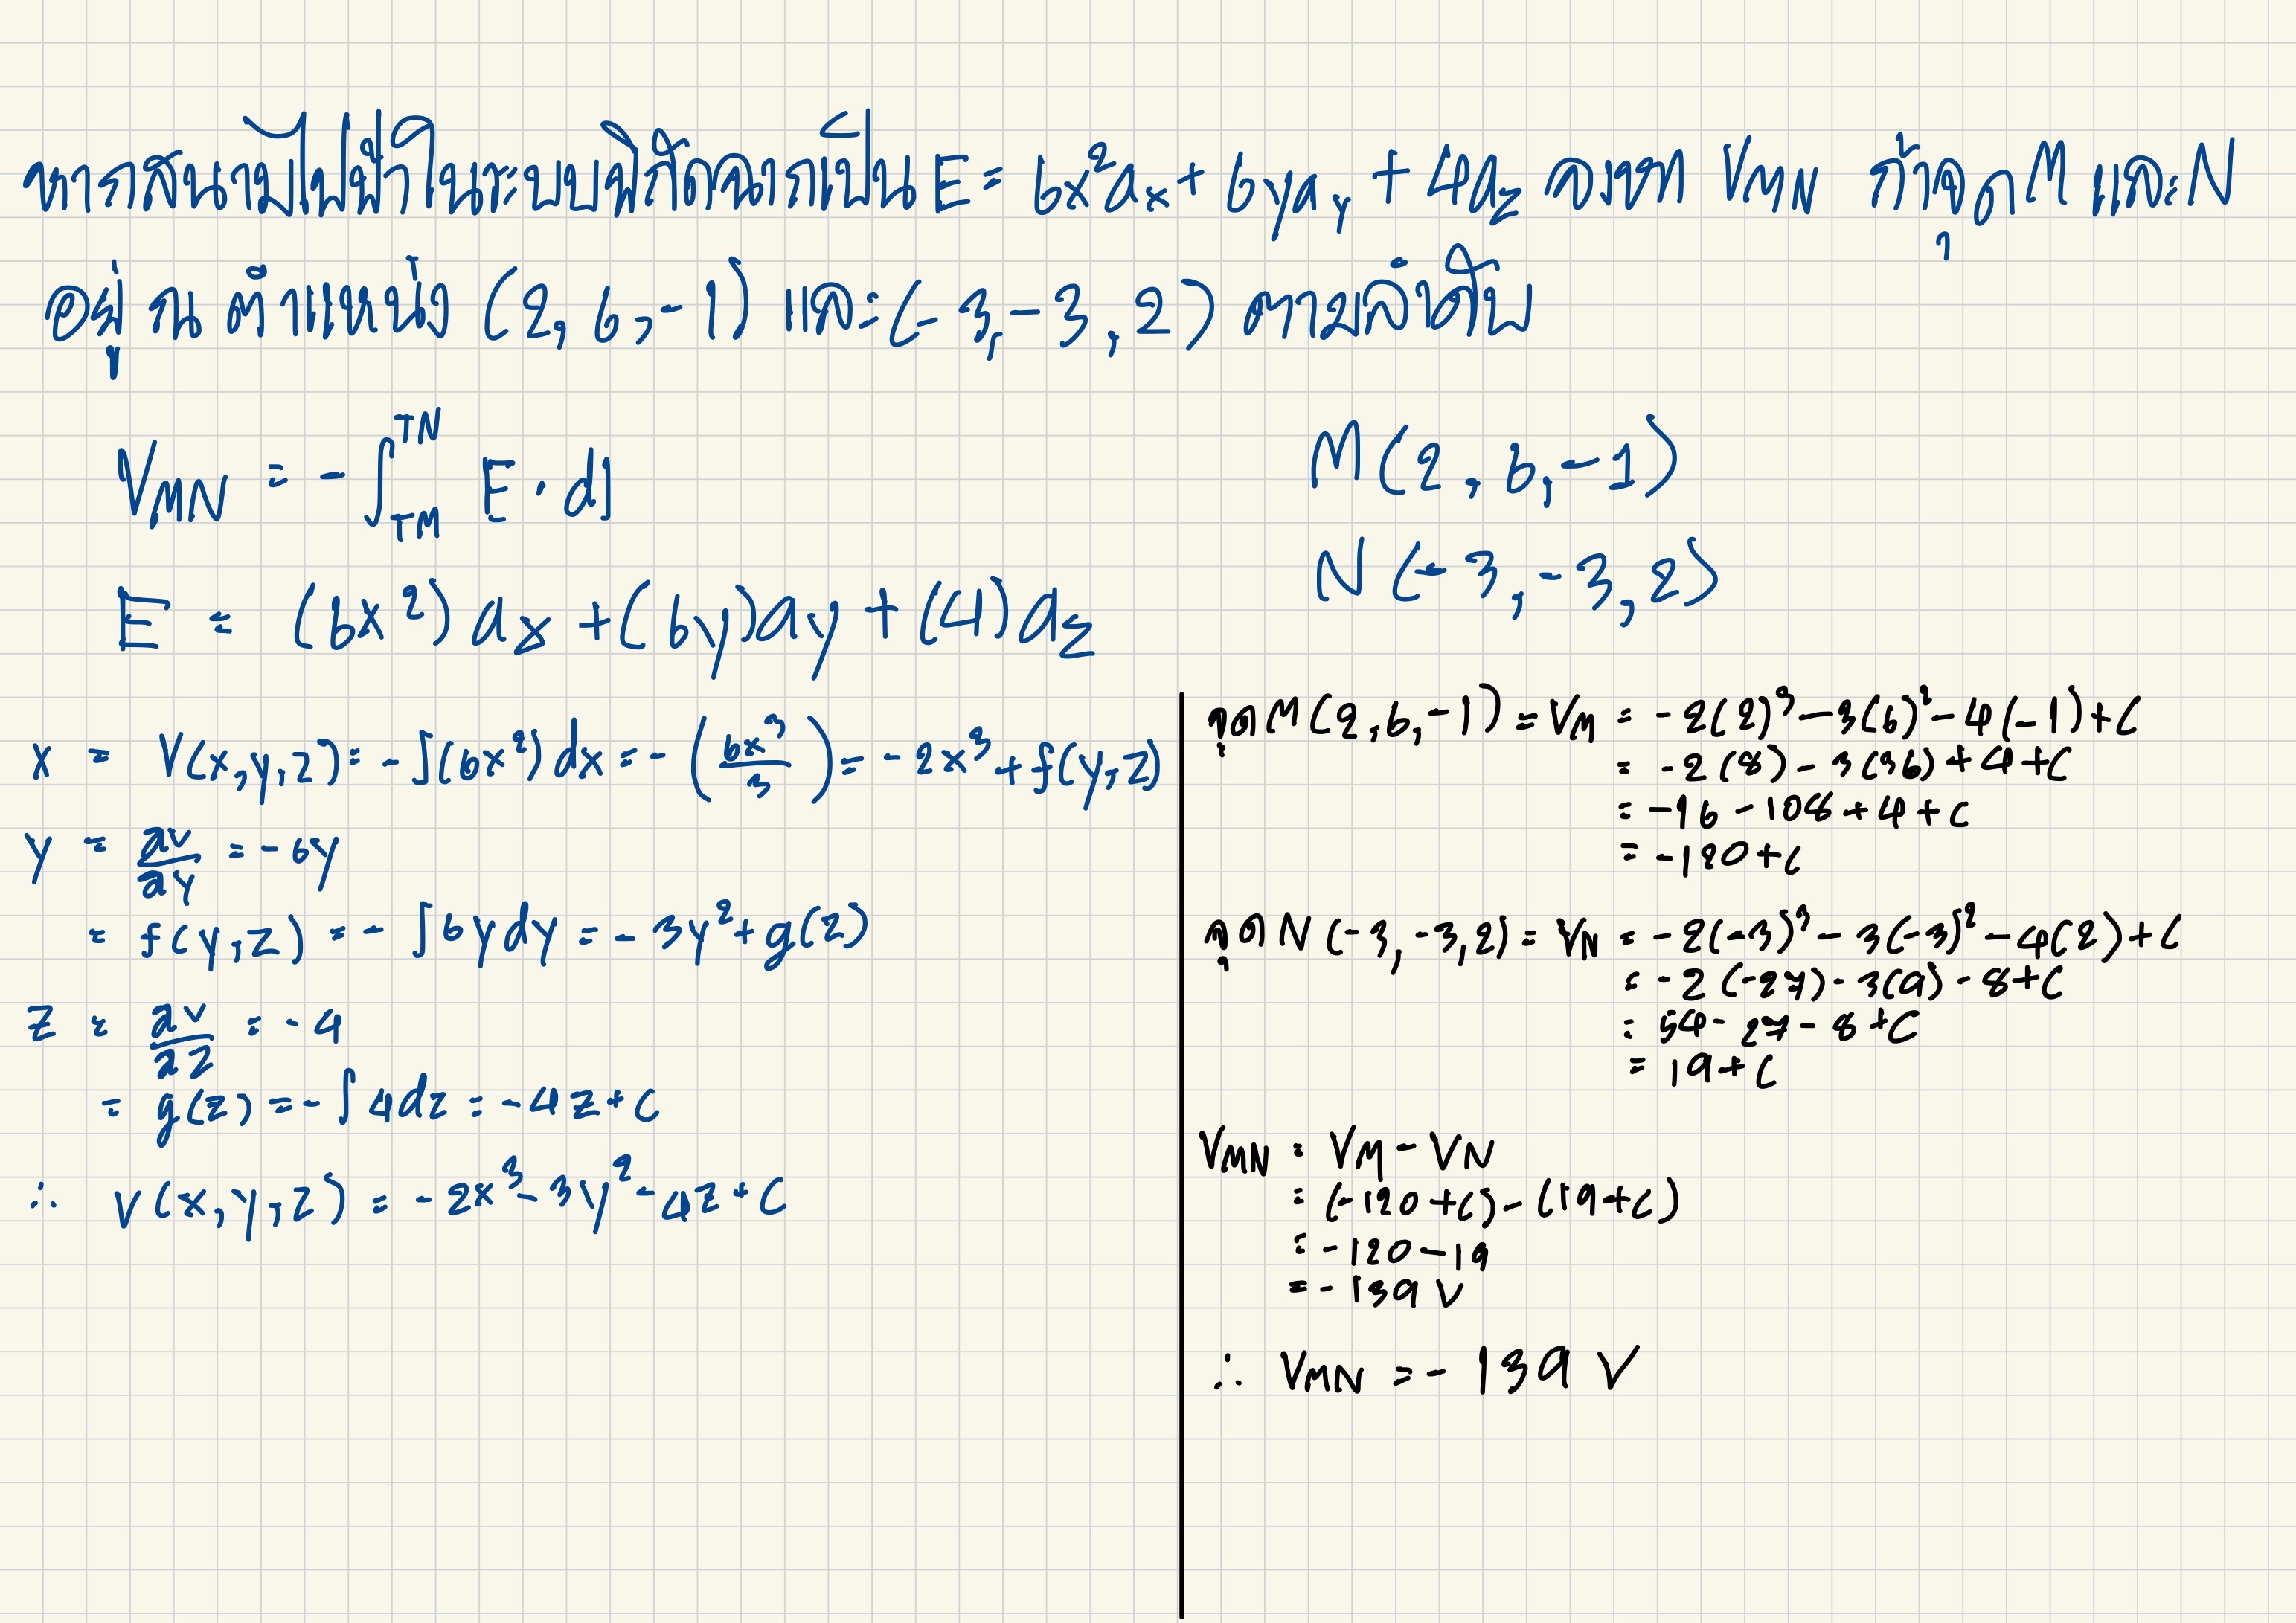 หากสนามไฟฟ้าในระบบพิกัดฉากเป็น E = 6x²ax + 6yay + 4az จงหา VMN ถ้าจุด M และ N
อยู่ ณ ตำแหน่ง (2, 6, -1) และ (-3, -3, 2) ตามลำดับ
VMN = - ∫_TM^TN E · dl
M(2, 6, -1)
N(-3, -3, 2)
E = (6x²)ax + (6y)ay + (4)az
x = V(x,y,z) = -∫(6x²)dx = -(6x³/3) = -2x³ + f(y,z)
y = ∂v/∂y = -6y
= f(y,z) = -∫6ydy = -3y² + g(z)
z = ∂v/∂z = -4
= g(z) = -∫4dz = -4z + C
∴ v(x,y,z) = -2x³ - 3y² - 4z + C
จุด M(2,6,-1) = VM = -2(2)³ - 3(6)² - 4(-1) + C
= -2(8) - 3(36) + 4 + C
= -16 - 108 + 4 + C
= -120 + C
จุด N(-3,-3,2) = VN = -2(-3)³ - 3(-3)² - 4(2) + C
= -2(-27) - 3(9) - 8 + C
= 54 - 27 - 8 + C
= 19 + C
VMN = VM - VN
= (-120 + C) - (19 + C)
= -120 - 19
= -139 V
∴ VMN = -139 V